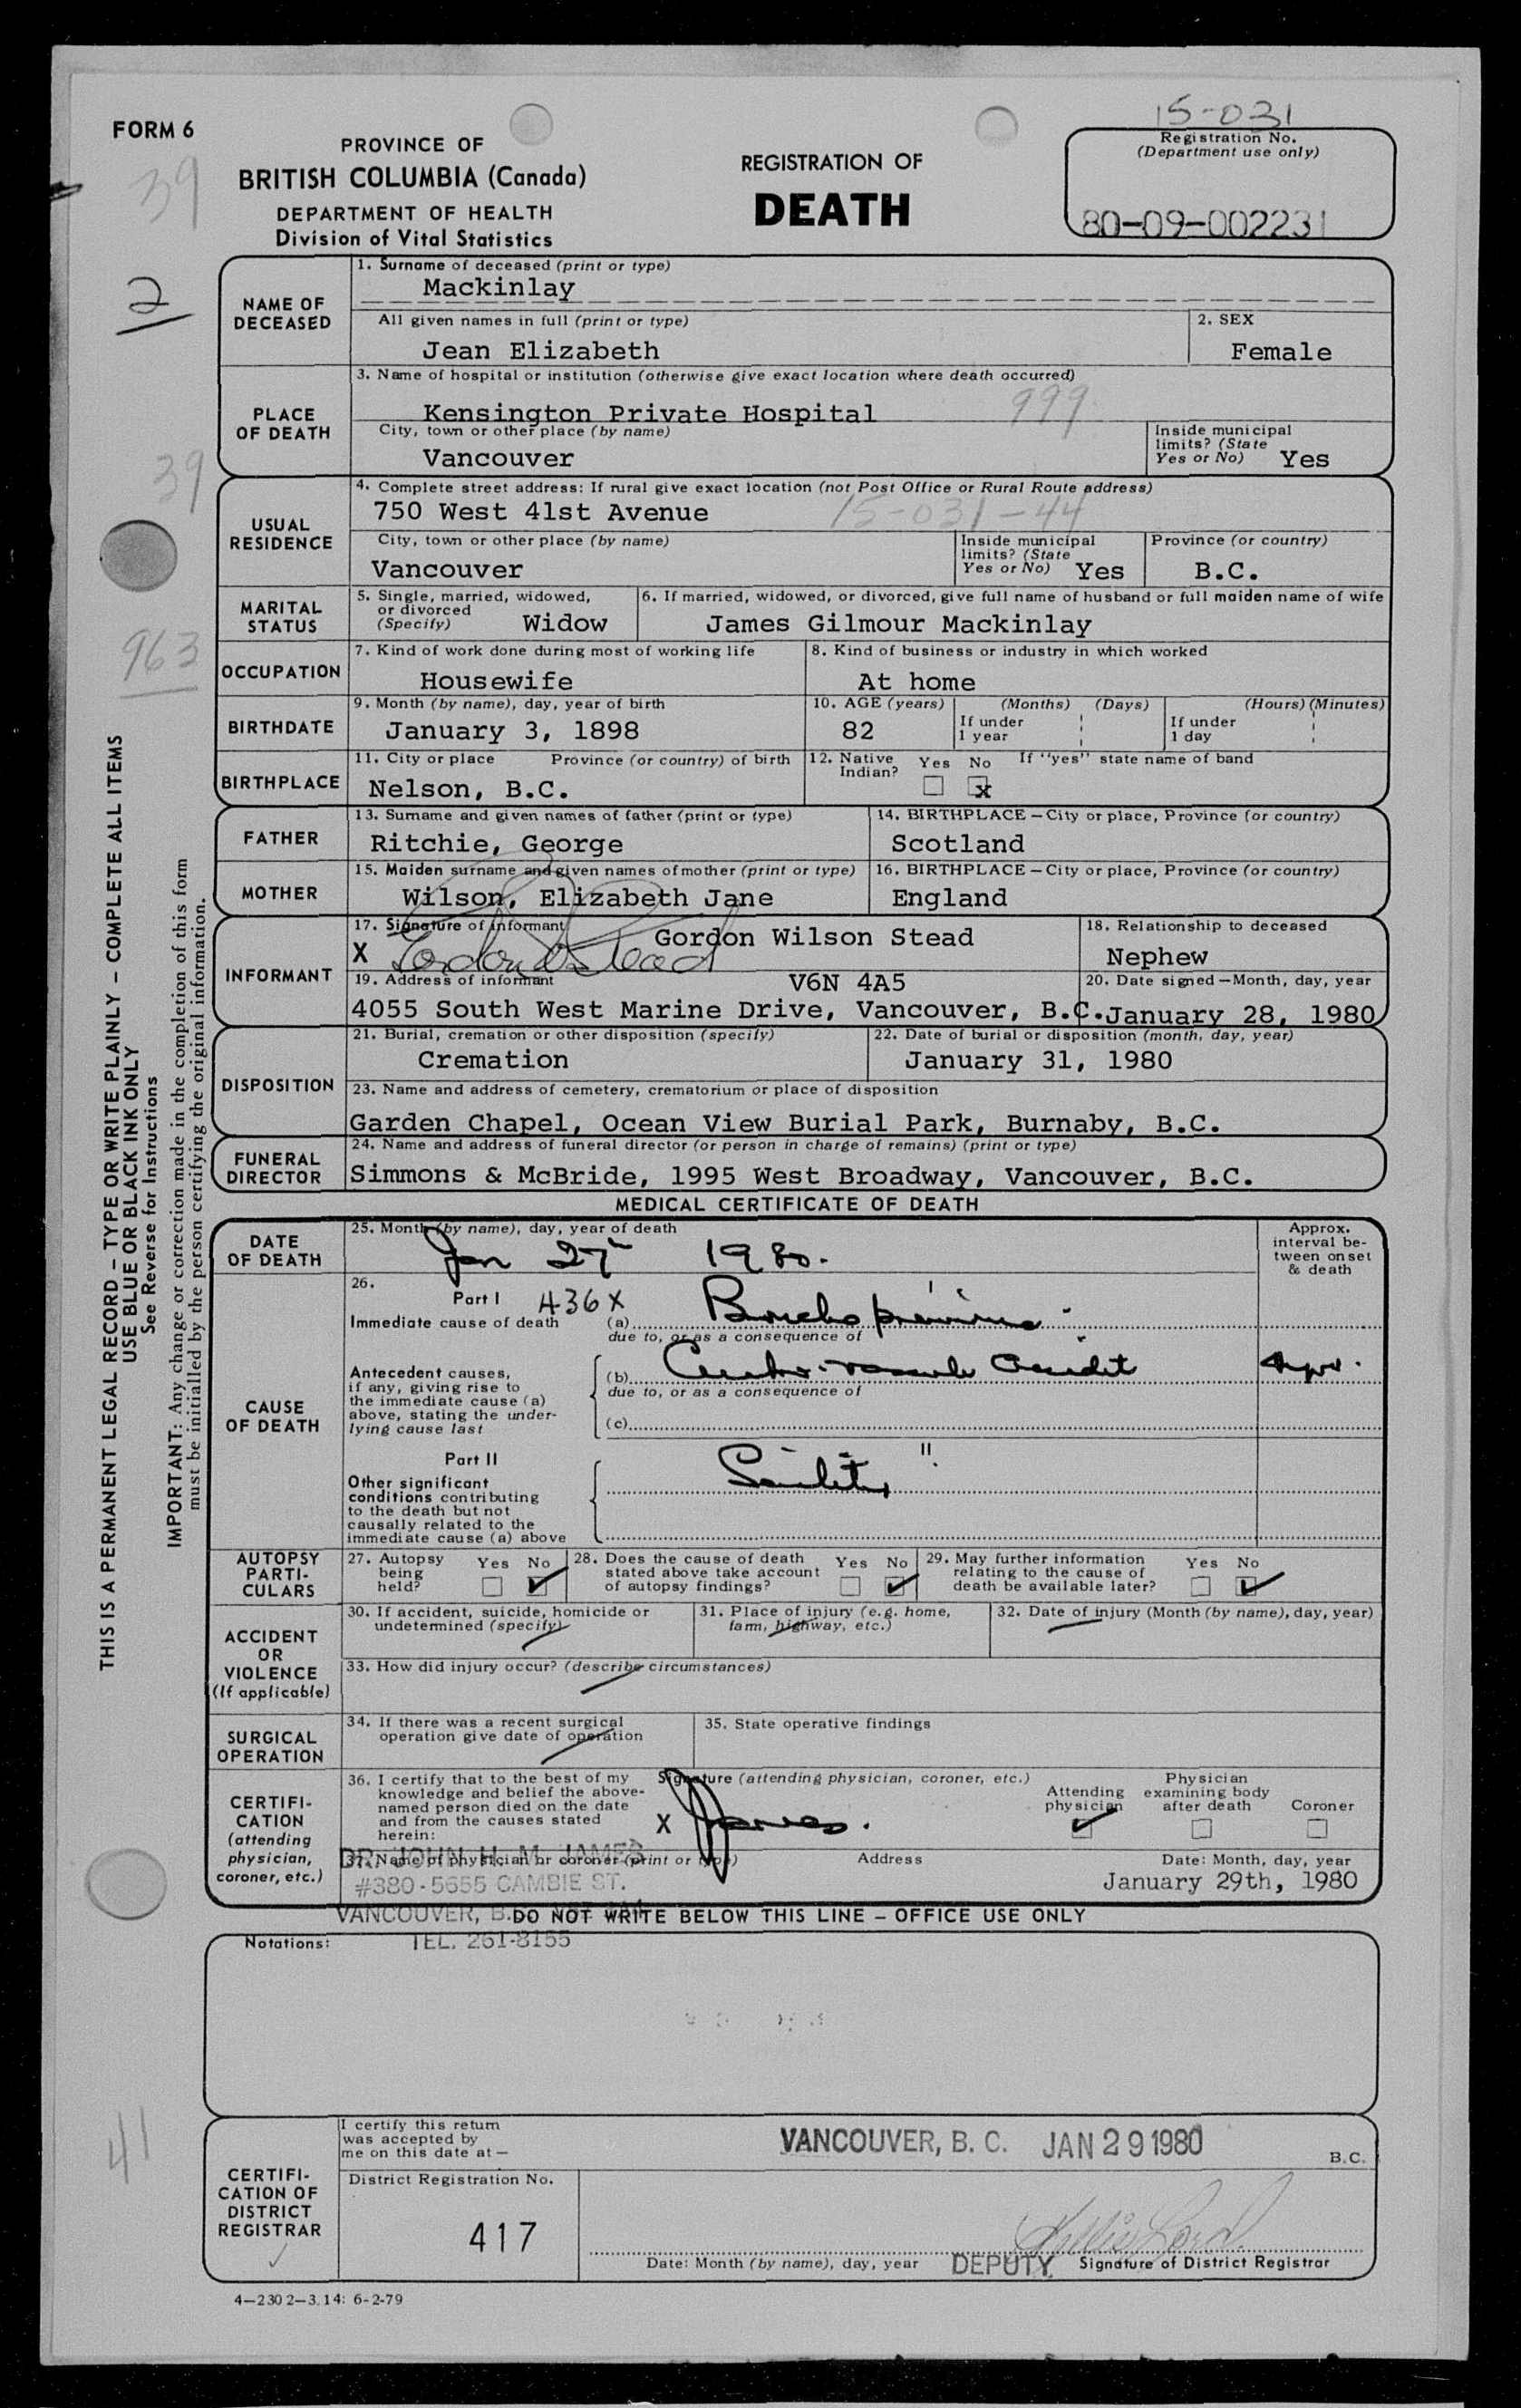 FORM 6
PROVINCE OF
BRITISH COLUMBIA (Canada)
DEPARTMENT OF HEALTH
Division of Vital Statistics
REGISTRATION OF
DEATH
15-031
Registration No.
(Department use only)
80-09-002231
39
2
NAME OF DECEASED
1. Surname of deceased (print or type)
Mackinlay
All given names in full (print or type)
Jean Elizabeth
2. SEX
Female
PLACE OF DEATH
3. Name of hospital or institution (otherwise give exact location where death occurred)
Kensington Private Hospital
999
City, town or other place (by name)
Vancouver
Inside municipal limits? (State Yes or No) Yes
39
USUAL RESIDENCE
4. Complete street address: If rural give exact location (not Post Office or Rural Route address)
750 West 41st Avenue
15-031-44
City, town or other place (by name)
Vancouver
Inside municipal limits? (State Yes or No) Yes
Province (or country)
B.C.
MARITAL STATUS
5. Single, married, widowed, or divorced (Specify) Widow
6. If married, widowed, or divorced, give full name of husband or full maiden name of wife
James Gilmour Mackinlay
963
OCCUPATION
7. Kind of work done during most of working life
Housewife
8. Kind of business or industry in which worked
At home
BIRTHDATE
9. Month (by name), day, year of birth
January 3, 1898
10. AGE (years)
82
If under 1 year
(Months) (Days)
If under 1 day
(Hours) (Minutes)
BIRTHPLACE
11. City or place Province (or country) of birth
Nelson, B.C.
12. Native Indian? Yes No x
If "yes" state name of band
FATHER
13. Surname and given names of father (print or type)
Ritchie, George
14. BIRTHPLACE – City or place, Province (or country)
Scotland
MOTHER
15. Maiden surname and given names of mother (print or type)
Wilson, Elizabeth Jane
16. BIRTHPLACE – City or place, Province (or country)
England
INFORMANT
17. Signature of informant
X Gordon W Stead
Gordon Wilson Stead
18. Relationship to deceased
Nephew
19. Address of informant
V6N 4A5
4055 South West Marine Drive, Vancouver, B.C.
20. Date signed – Month, day, year
January 28, 1980
DISPOSITION
21. Burial, cremation or other disposition (specify)
Cremation
22. Date of burial or disposition (month, day, year)
January 31, 1980
23. Name and address of cemetery, crematorium or place of disposition
Garden Chapel, Ocean View Burial Park, Burnaby, B.C.
FUNERAL DIRECTOR
24. Name and address of funeral director (or person in charge of remains) (print or type)
Simmons & McBride, 1995 West Broadway, Vancouver, B.C.
MEDICAL CERTIFICATE OF DEATH
DATE OF DEATH
25. Month (by name), day, year of death
Jan 27 1980.
Approx. interval between onset & death
CAUSE OF DEATH
26.
Part I 436X
Immediate cause of death
(a) Bronchopneumonia
due to, or as a consequence of
Antecedent causes, if any, giving rise to the immediate cause (a) above, stating the underlying cause last
(b) Cerebro-vascular Accident
due to, or as a consequence of
(c)
Part II
Other significant conditions contributing to the death but not causally related to the immediate cause (a) above
Senility
AUTOPSY PARTICULARS
27. Autopsy being held? Yes No
28. Does the cause of death stated above take account of autopsy findings? Yes No
29. May further information relating to the cause of death be available later? Yes No
ACCIDENT OR VIOLENCE (If applicable)
30. If accident, suicide, homicide or undetermined (specify)
31. Place of injury (e.g. home, farm, highway, etc.)
32. Date of injury (Month (by name), day, year)
33. How did injury occur? (describe circumstances)
SURGICAL OPERATION
34. If there was a recent surgical operation give date of operation
35. State operative findings
CERTIFICATION (attending physician, coroner, etc.)
36. I certify that to the best of my knowledge and belief the above-named person died on the date and from the causes stated herein:
Signature (attending physician, coroner, etc.)
X James.
Attending physician
Physician examining body after death
Coroner
37. Name of physician or coroner (print or type)
DR. JOHN H. M. JAMES
#380 - 5655 CAMBIE ST.
VANCOUVER, B.C.
TEL. 261-8155
Address
Date: Month, day, year
January 29th, 1980
DO NOT WRITE BELOW THIS LINE – OFFICE USE ONLY
Notations:
41
CERTIFICATION OF DISTRICT REGISTRAR
I certify this return was accepted by me on this date at –
VANCOUVER, B. C. JAN 29 1980
B.C.
District Registration No.
417
Date: Month (by name), day, year
DEPUTY Signature of District Registrar
4–230 2–3.14: 6-2-79
THIS IS A PERMANENT LEGAL RECORD – TYPE OR WRITE PLAINLY – COMPLETE ALL ITEMS
USE BLUE OR BLACK INK ONLY
See Reverse for Instructions
IMPORTANT: Any change or correction made in the completion of this form
must be initialled by the person certifying the original information.